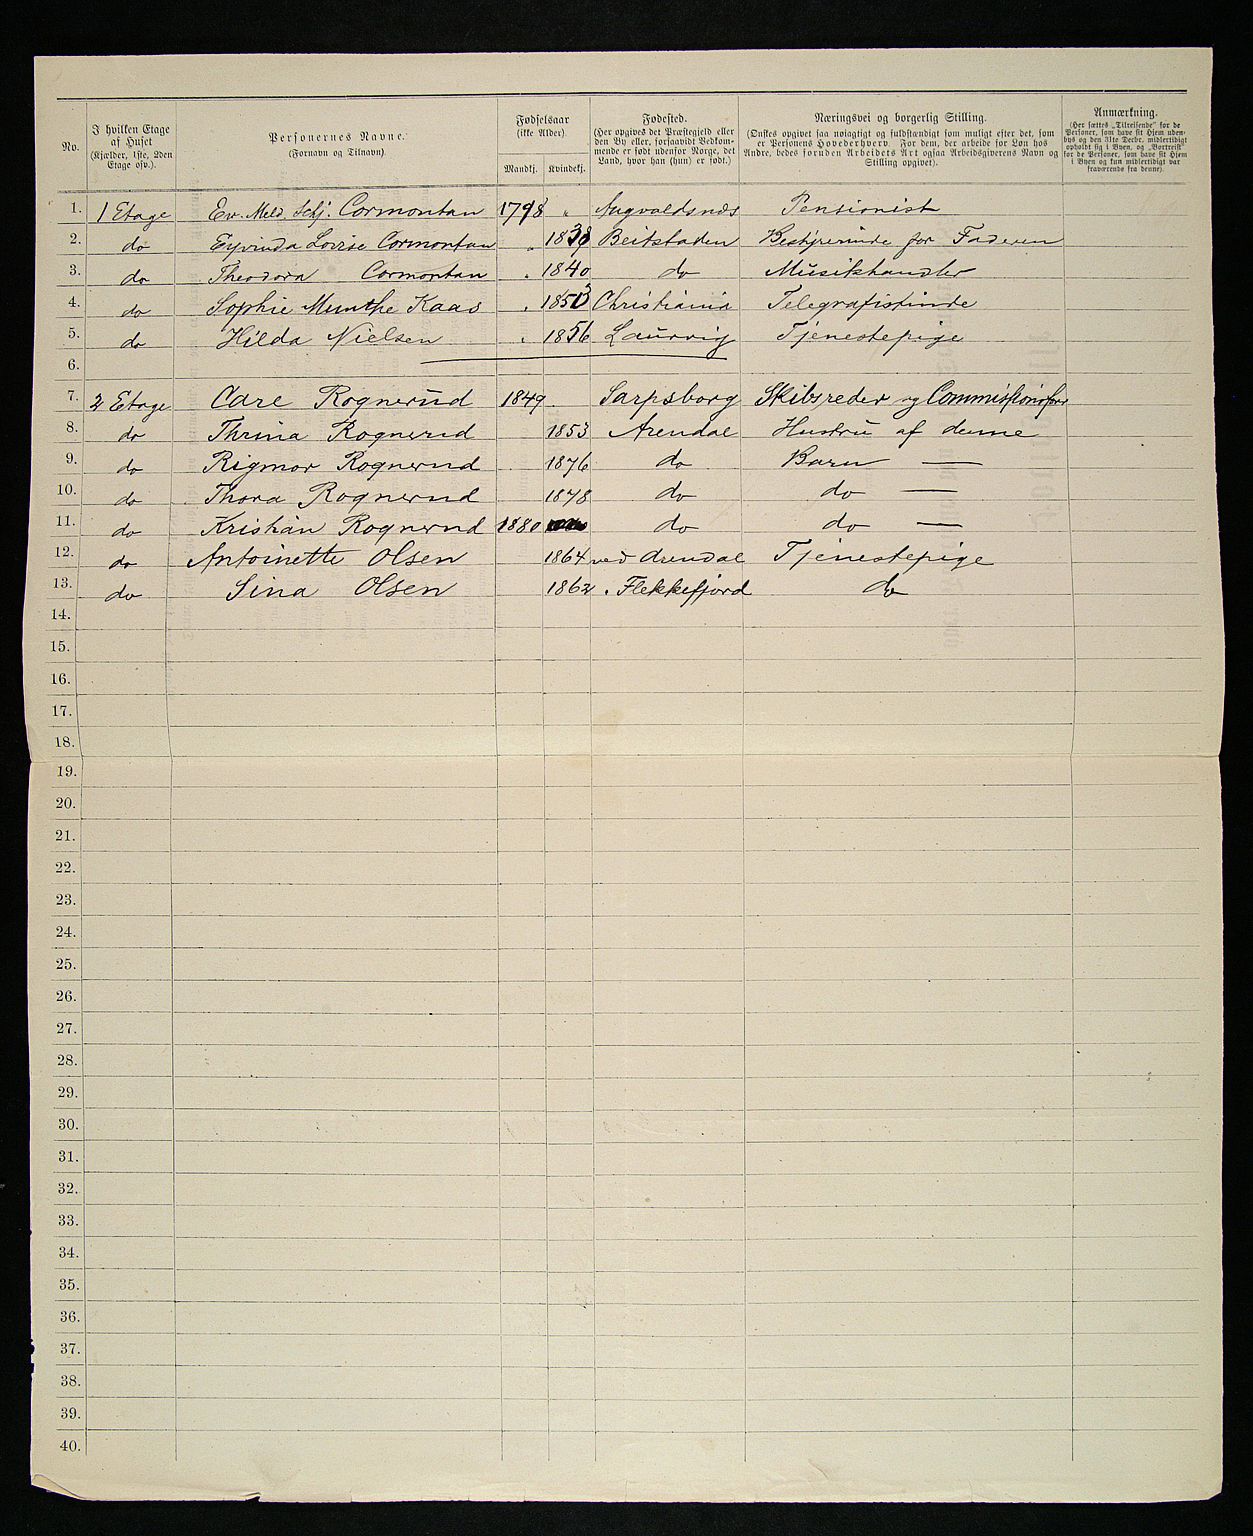 No. | I hvilken Etage af Huset (Kjælder, 1ste, 2den Etage osv.) | Personernes Navne. (Fornavn og Tilnavn). | Fødselsaar (ikke Alder). Mandkj. | Kvindekj. | Fødested. (Her opgives det Præstegjeld eller den By eller, forsaavidt Vedkommende er født udenfor Norge, det Land, hvor han (hun) er født.) | Næringsvei og borgerlig Stilling. (Ønskes opgivet saa nøiagtigt og fuldstændigt som muligt efter det, som er Personens Hovederhverv. For dem, der arbeide for Løn hos Andre, bedes foruden Arbeidets Art ogsaa Arbeidsgiverens Navn og Stilling opgivet). | Anmærkning. (Her sættes „Tilreisende" for de Personer, som have sit Hjem udenbys og den 31te Decbr. midlertidigt opholdt sig i Byen, og „Bortreist" for de Personer, som have sit Hjem i Byen og kun midlertidigt var fraværende fra denne).
1. | 1 Etage | Ev. Meld. Schj. Cormontan | 1798 | " | Augvaldsnæs | Pensionist
2. | do | Eyvinda Lovise Cormontan | " | 1838 | Beitstaden | Bestyrerinde for Faderen
3. | do | Theodora Cormontan | " | 1840 | do | Musikhandler
4. | do | Sophie Munthe Kaas | " | 1853 | Christiania | Telegrafistinde
5. | do | Hilda Nielsen | " | 1856 | Laurvig | Tjenestepige
6.
7. | 2 Etage | Carl Rognerud | 1849 | | Sarpsborg | Skibsreder og
8. | do | Thrina Rognerud | | 1853 | Arendal | Hustru af denne
9. | do | Rigmor Rognerud | | 1876 | do | Barn —
10. | do | Thora Rognerud | | 1878 | do | do —
11. | do | Kristian Rognerud | 1880 | | do | do —
12. | do | Antoinette Olsen | | 1864 | ved Arendal | Tjenestepige
13. | do | Sina Olsen | | 1862 | " Flekkefjord | do
14.
15.
16.
17.
18.
19.
20.
21.
22.
23.
24.
25.
26.
27.
28.
29.
30.
31.
32.
33.
34.
35.
36.
37.
38.
39.
40.